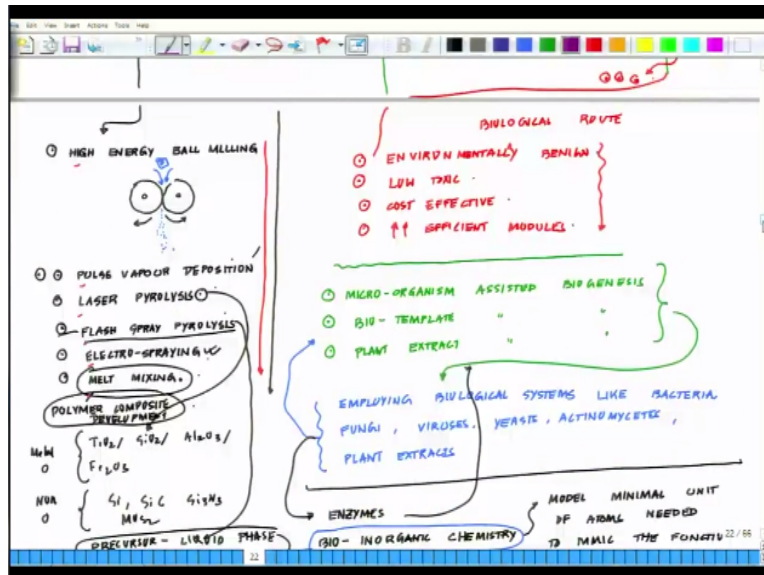 File Edit View Insert Actions Tools Help
HIGH ENERGY BALL MILLING
PULSE VAPOUR DEPOSITION
LASER PYROLYSIS
FLASH SPRAY PYROLYSIS
ELECTRO-SPRAYING
MELT MIXING.
POLYMER COMPOSITE
DEVELOPMENT
TiO2/ SiO2/ Al2O3/
Fe2O3
NON
O
Si, SiC Si3N3
PRECURSOR - LIQUID PHASE
BIOLOGICAL ROUTE
ENVIRONMENTALLY BENIGN
LOW TOXIC.
COST EFFECTIVE.
↑↑ EFFICIENT MODULES.
MICRO-ORGANISM ASSISTED BIOGENESIS
BIO-TEMPLATE " "
PLANT EXTRACT " "
EMPLOYING BIOLOGICAL SYSTEMS LIKE BACTERIA
FUNGI, VIRUSES, YEASTS, ACTINOMYCETES,
PLANT EXTRACTS
ENZYMES
BIO-INORGANIC CHEMISTRY
MODEL MINIMAL UNIT
OF ATOMS NEEDED
TO MIMIC THE
22/66
22